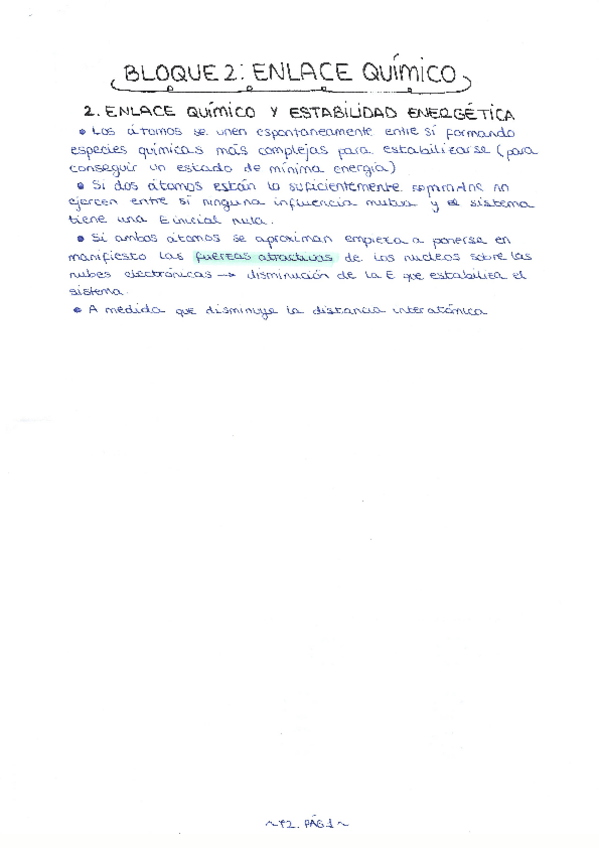 BLOQUE 2: ENLACE QUÍMICO
2. ENLACE QUÍMICO Y ESTABILIDAD ENERGÉTICA
• Los átomos se unen espontaneamente entre sí formando
especies químicas más complejas para estabilizarse (para
conseguir un estado de mínima energía)
• Si dos átomos están lo suficientemente no
ejercen entre sí ninguna influencia mutua y el sistema
tiene una E inicial nula.
• Si ambos átomos se aproximan empieza a ponerse en
manifiesto las fuerzas atractivas de los nucleos sobre las
nubes electrónicas → disminución de la E que estabiliza el
sistema.
• A medida que disminuye la distancia interatómica
~T2. PÁG 1~